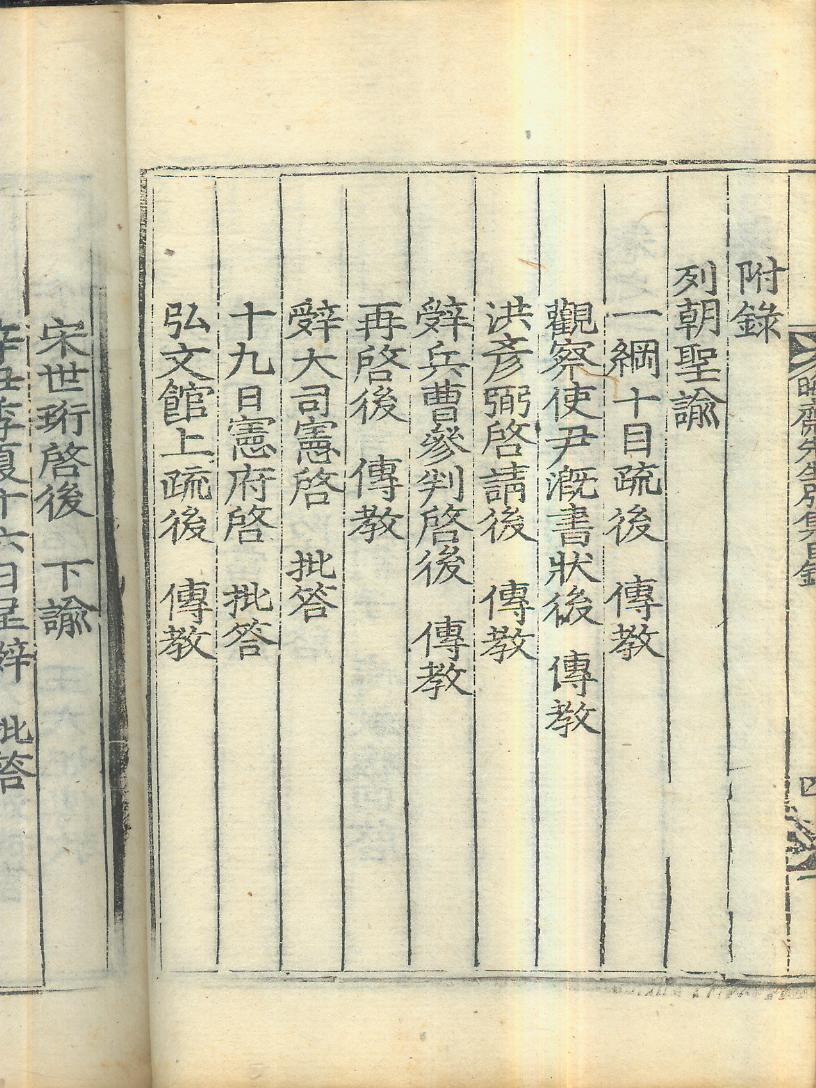 晦齋先生別集目錄
四
附錄
列朝聖諭
一綱十目疏後 傳教
觀察使尹漑書狀後 傳教
洪彥弼啓請後 傳教
辭兵曹參判啓後 傳教
再啓後 傳教
辭大司憲啓 批答
十九日憲府啓 批答
弘文館上疏後 傳教
宋世珩啓後 下諭
辛丑季夏十六日呈辭 批答